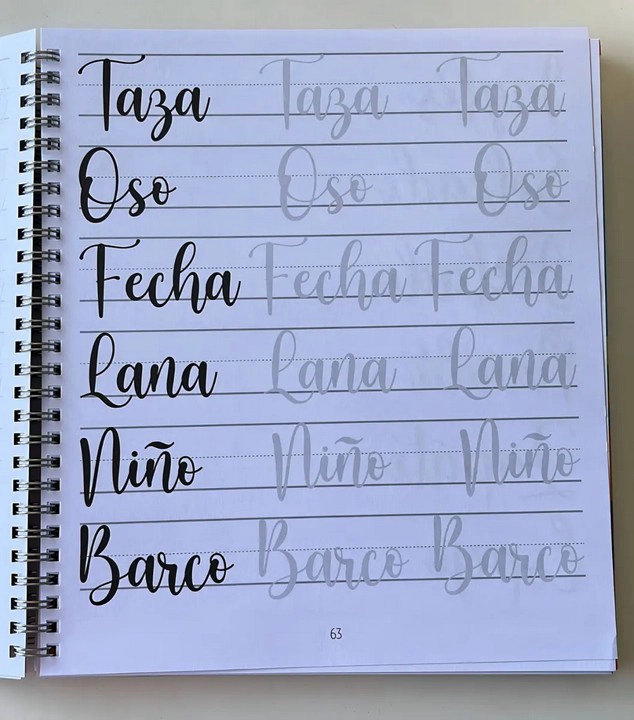 Taza Taza Taza
Oso Oso Oso
Fecha Fecha Fecha
Lana Lana Lana
Niño Niño Niño
Barco Barco Barco
63